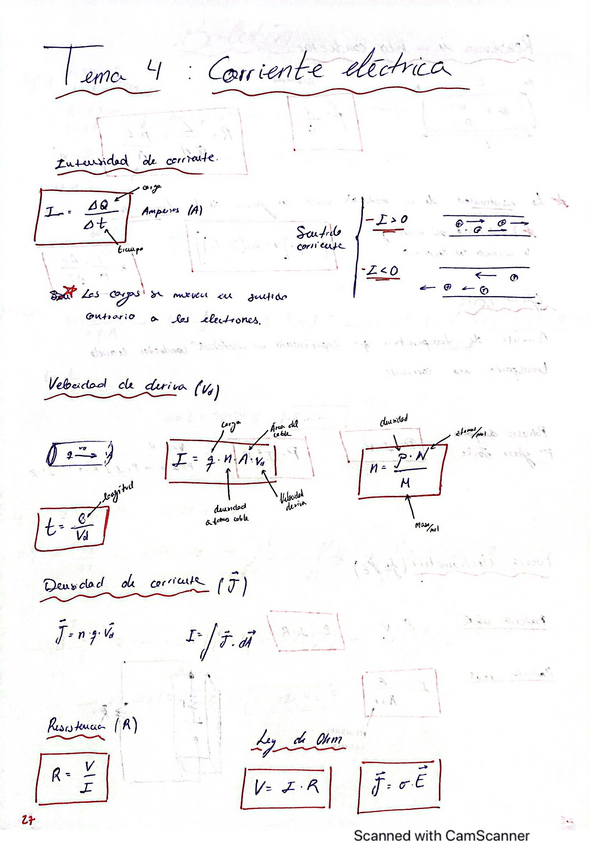 Tema 4 : Corriente eléctrica
Intensidad de corriente.
I = ΔQ / Δt
carga
tiempo
Amperios (A)
Sentido corriente
- I > 0
- I < 0
Las cargas se mueven en sentido
contrario a los electrones.
Velocidad de deriva (Vd)
q vd
I = q · n · A · vd
carga
Área del cable
densidad átomos cable
Velocidad deriva
n = ρ · N / M
densidad
átomos/mol
masa/mol
t = ℓ / Vd
longitud
Densidad de corriente (J⃗)
J⃗ = n · q · v⃗d
I = ∫ J⃗ · dA⃗
Resistencia (R)
R = V / I
Ley de Ohm
V = I · R
J⃗ = σ · E⃗
27
Scanned with CamScanner